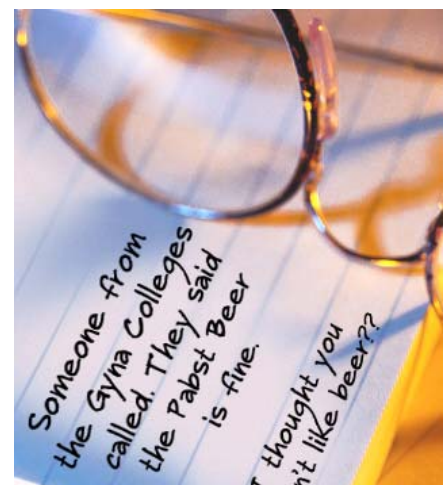 Someone from
the Gyna Colleges
called. They said
the Pabst Beer
is fine.
I thought you
n't like beer??